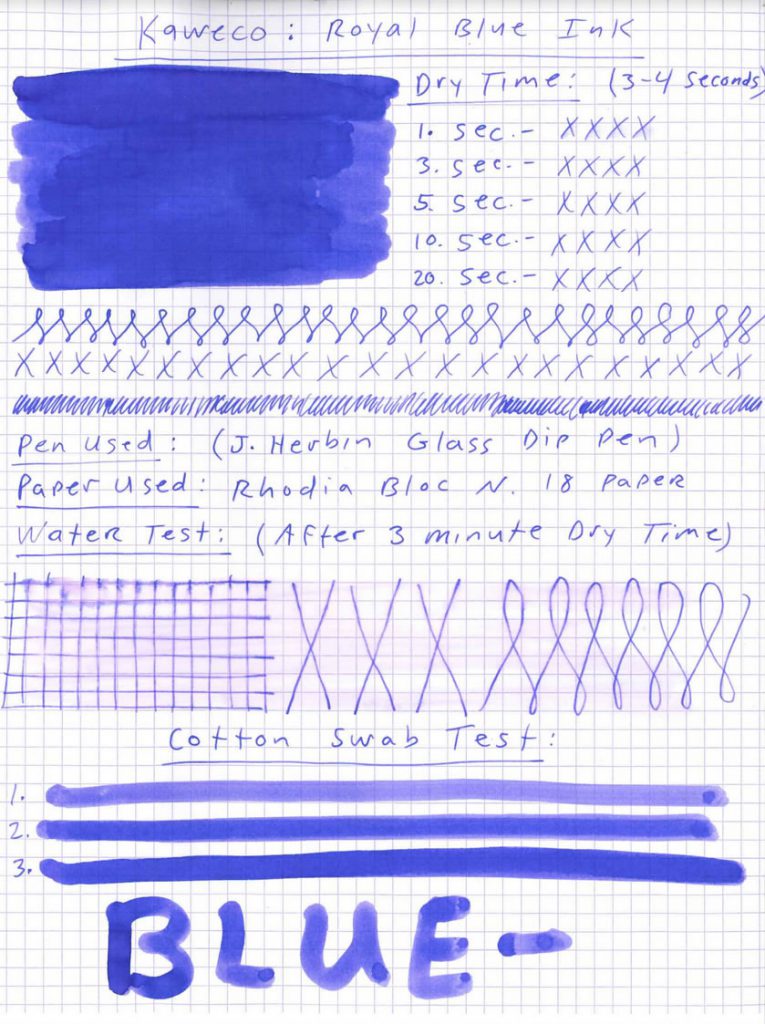 Kaweco: Royal Blue Ink
Dry Time: (3-4 seconds)
1. sec.- XXXX
3. sec.- XXXX
5. sec.- XXXX
10. sec.- XXXX
20. sec.- XXXX
XXXXXXXXXXXXXXXXXXXXXXXXXX
Pen Used: (J. Herbin Glass Dip Pen)
Paper Used: Rhodia Bloc N. 18 Paper
Water Test: (After 3 minute Dry Time)
XXX
Cotton Swab Test:
1.
2.
3.
BLUE-